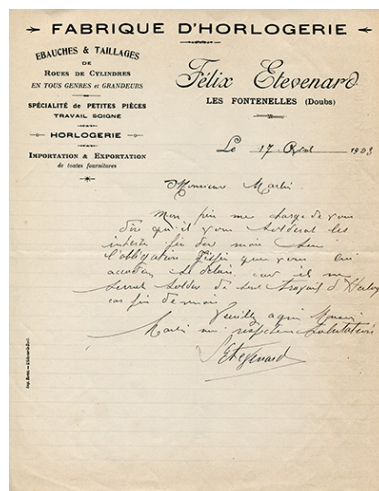 FABRIQUE D'HORLOGERIE
EBAUCHES & TAILLAGES
DE
ROUES DE CYLINDRES
EN TOUS GENRES ET GRANDEURS
SPÉCIALITÉ DE PETITES PIÈCES
TRAVAIL SOIGNÉ
HORLOGERIE
IMPORTATION & EXPORTATION
de toutes fournitures
Félix Etevenard
LES FONTENELLES (Doubs)
Le 17 1903
Monsieur Martin
Mon père me charge de vous
dire qu'il vous les
intérêts fin du mois
l'obligation que vous lui
accordez délais, car il
soldes de
cas fin de mois
Veuillez agréer Monsieur
Martin mes respectueuses salutations
Etevenard